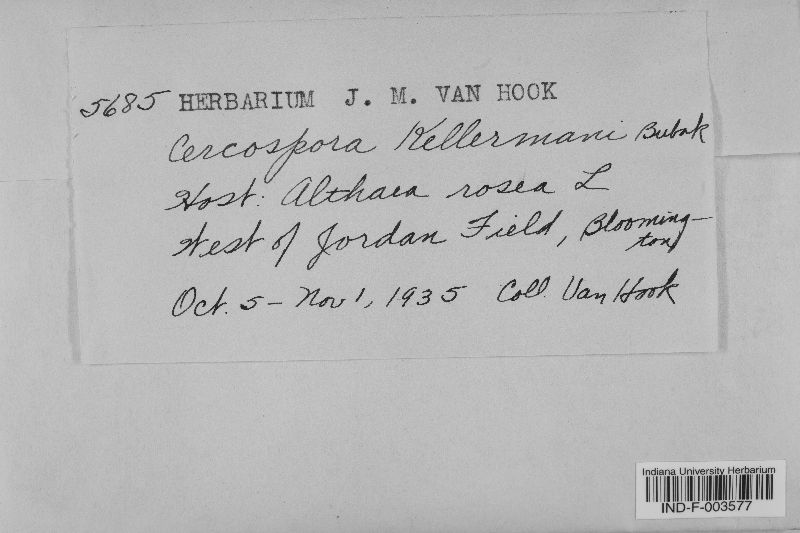 5685 HERBARIUM J. M. VAN HOOK
Cercospora Kellermani Bubak
Host: Althaea rosea L
West of Jordan Field, Blooming-
ton
Oct. 5 - Nov 1, 1935 Coll. Van Hook
Indiana University Herbarium
IND-F-003577